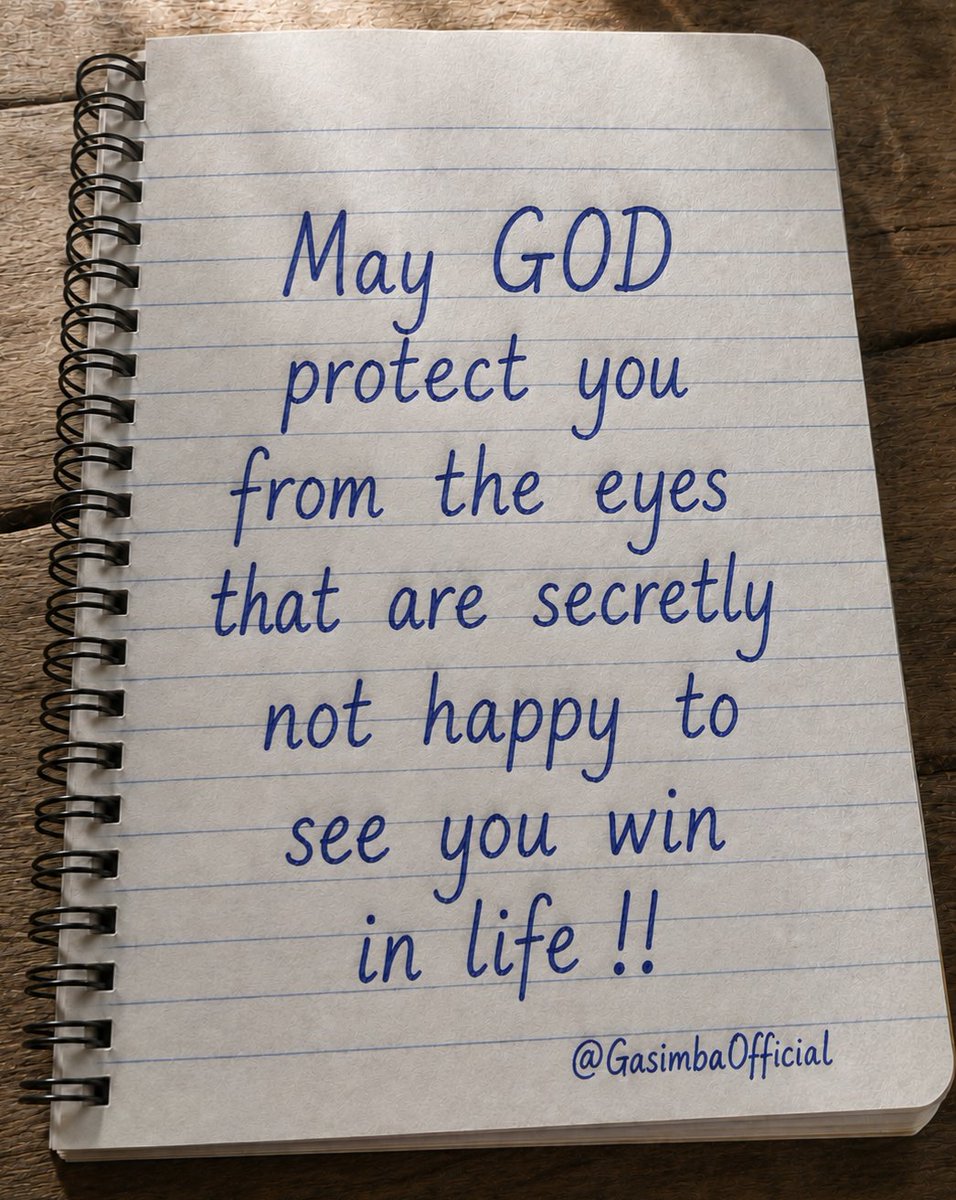 May GOD
protect you
from the eyes
that are secretly
not happy to
see you win
in life !!
@GasimbaOfficial